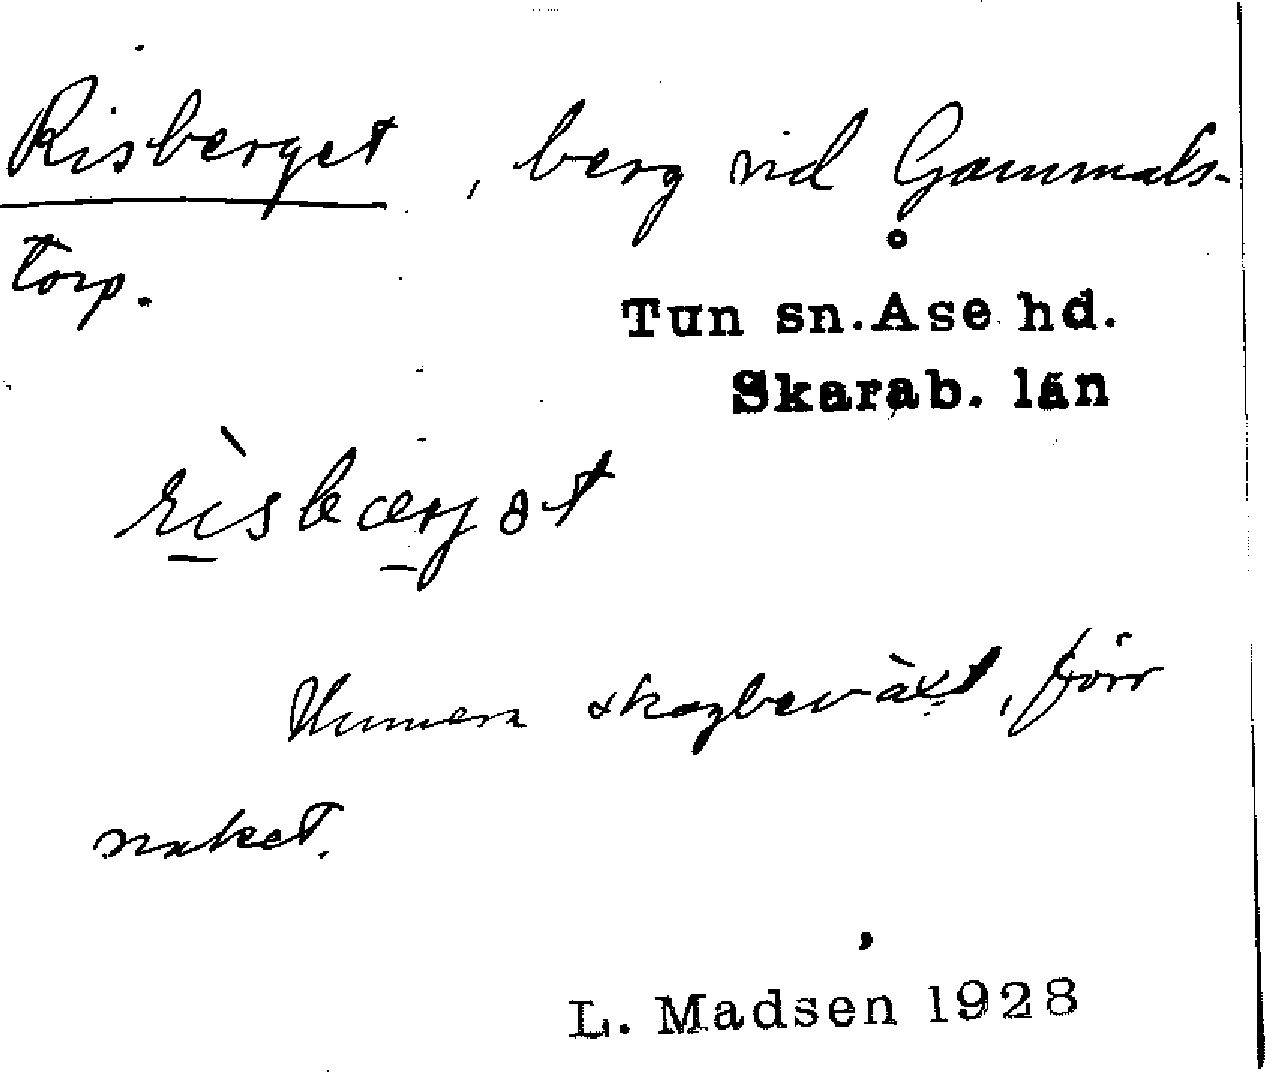 Risberget, berg vid Gammals-
torp.
Tun sn. Åse hd.
Skarab. län
rìsbærjət
Numera skogbeväxt, förr
naket.
L. Madsen 1928